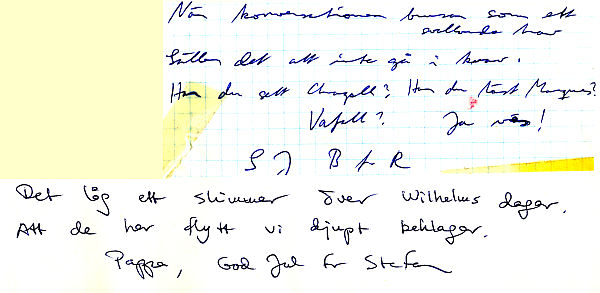 När konversationen brusar som ett
svallande hav
Gäller det att inte gå i kvav.
Har du sett Chagall? Har du läst Marques?
Vafall? Ja !
S J B f R
Det låg ett skimmer över Wilhelms dagar.
Att de har flytt vi djupt beklagar.
Pappa, God Jul fr Stefan